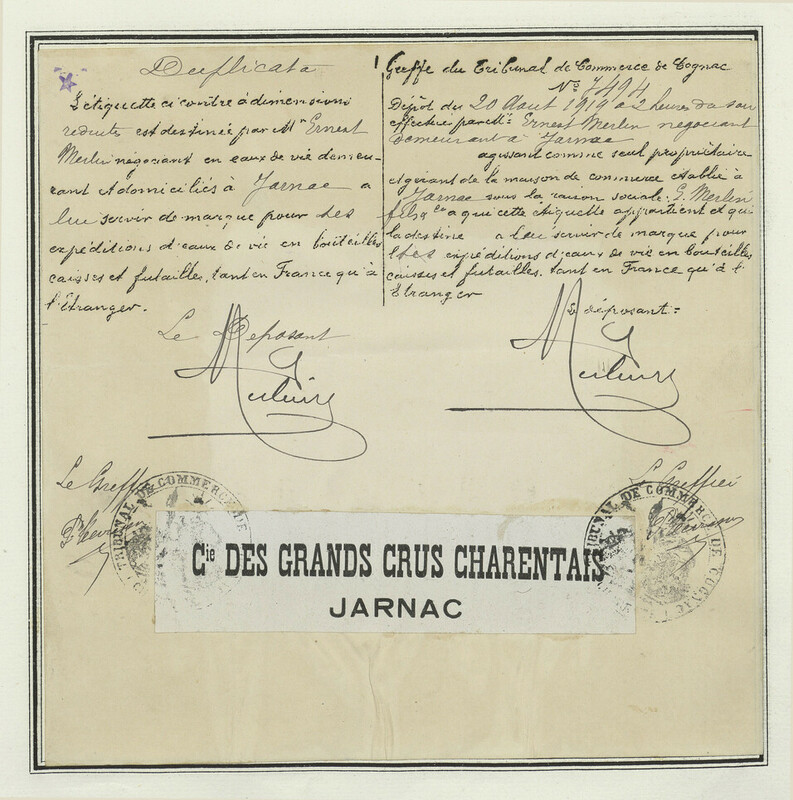 Duplicata
L'étiquette ci contre à dimensions
reduites est destinée par Mr Ernest
Merlin négociant en eaux de vie demeu-
rant et domiciliés à Jarnac a
lui servir de marque pour ses
expéditions d'eaux de vie en bouteilles
caisses et futailles, tant en France qu'à
l'Etranger.
Le Deposant
Greffe du Tribunal de Commerce de Cognac
No 7494
Dépôt du 20 Aout 1919 à 2 heures du soir
effectué par Mr Ernest Merlin negociant
demeurant à Jarnac
agissant comme seul propriétaire
et gérant de la maison de commerce établie à
Jarnac sous la raison sociale: E. Merlin
fils & Co a qui cette étiquette appartient et qui
la destine a lui servir de marque pour
ses expéditions d'eaux de vie en bouteilles
caisses et futailles. tant en France qu'à l'
Etranger
Le déposant:
Le Greffier
Le Greffier
TRIBUNAL DE COMMERCE DE
TRIBUNAL DE COMMERCE DE COGNAC
Cie DES GRANDS CRUS CHARENTAIS
JARNAC